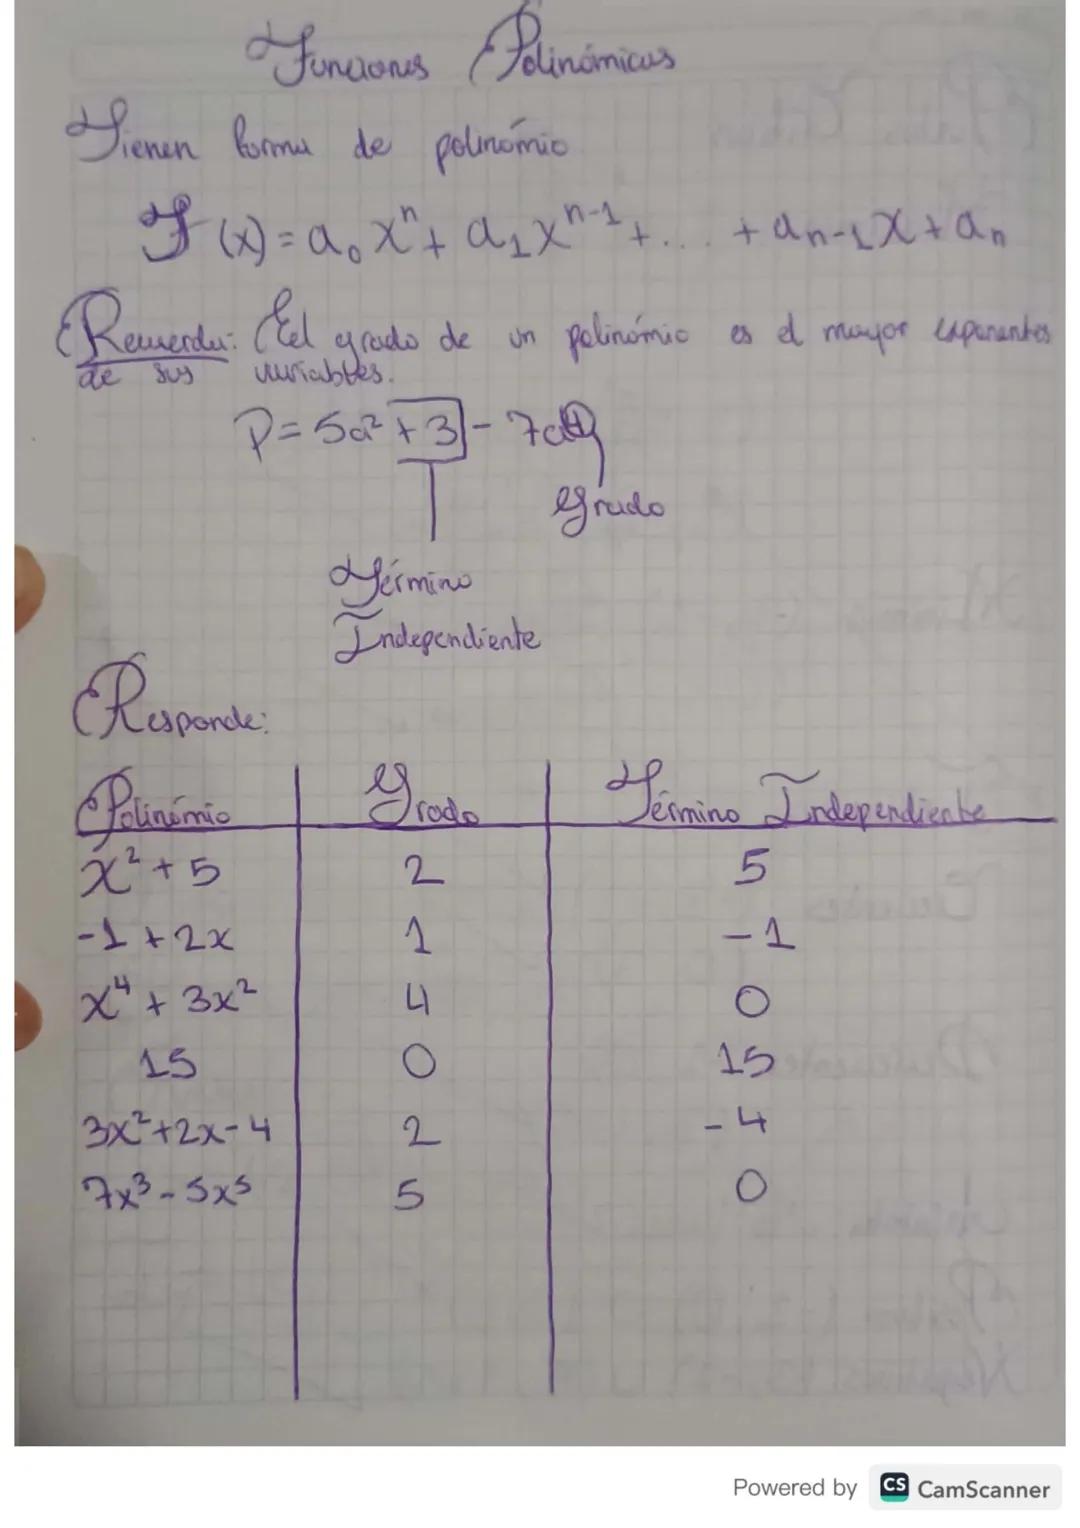 Funciones Polinómicas
Tienen forma de polinómio
F(x) = a₀xⁿ + a₁xⁿ⁻¹ + ... + aₙ₋₁x + aₙ
Recuerda: El grado de un polinómio es el mayor exponentes
de sus variables.
P = 5a² + 3 - 7a⁴
Grado
Término
Independiente
Responde:
Polinómio Grado Término Independiente
x² + 5 2 5
-1 + 2x 1 -1
x⁴ + 3x² 4 0
15 0 15
3x² + 2x - 4 2 -4
7x³ - 5x⁵ 5 0
Powered by CS CamScanner